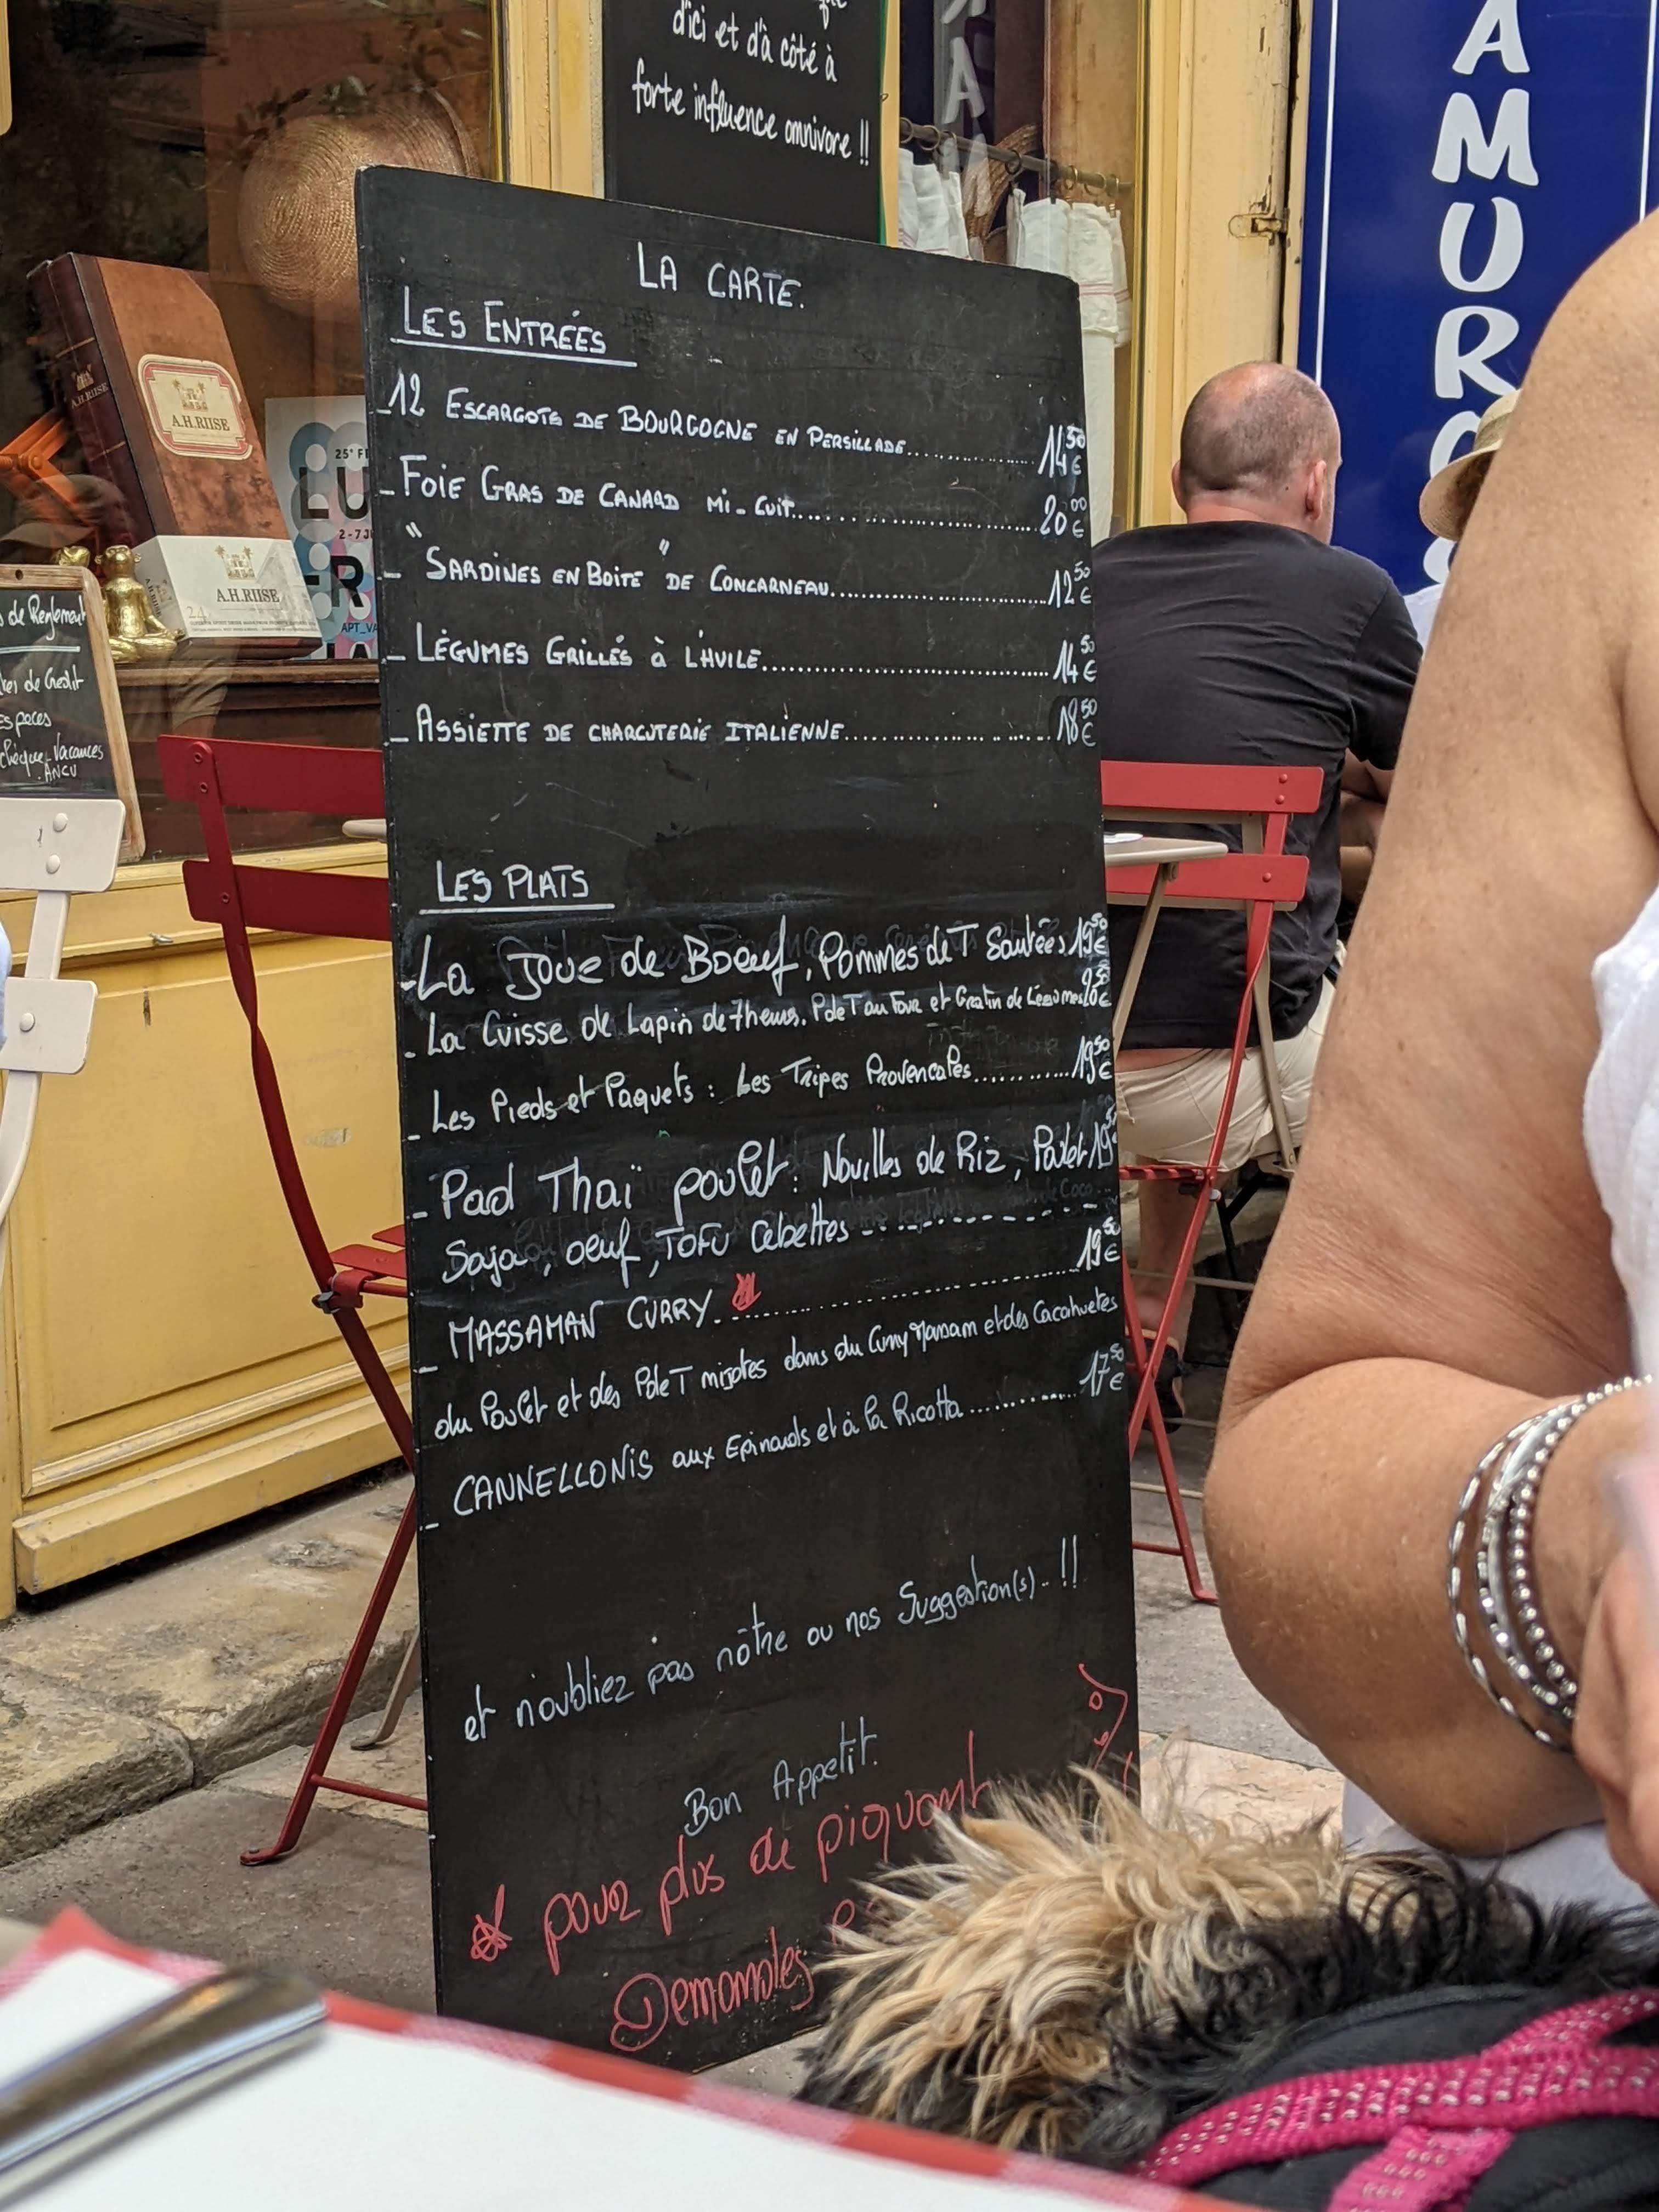 d'ici et d'à côté à
forte influence omnivore !!
LA CARTE.
LES ENTRÉES
_12 ESCARGOTS DE BOURGOGNE EN PERSILLADE.................. 14€50
_ FOIE GRAS DE CANARD MI-CUIT.................................20€00
_ "SARDINES EN BOITE" DE CONCARNEAU..............................12€50
_ LÉGUMES GRILLÉS à L'HUILE.......................................14€50
_ ASSIETTE DE CHARCUTERIE ITALIENNE..........................18€50
LES PLATS
- La Joue de Boeuf, Pommes de T Sautées 19€50
- La Cuisse de Lapin de 7heures, P de T au Four et Gratin de Légumes 20€50
- Les Pieds et Paquets : Les Tripes Provencales............19€50
- Pad Thaï poulet : Nouilles de Riz, Poulet 19€50
Soja, oeuf, TOFU Cebettes - - - - - - - - - -
- MASSAMAN CURRY.......................................19€50
du Poulet et des P de T mijotés dans du Curry Massam et des Cacahuetes
- CANNELLONIS aux Epinards et à la Ricotta..............17€50
et n'oubliez pas nôtre ou nos Suggestion(s)- !!
Bon Appetit.
pour plus de piquant
Demandez
A.H.RIISE
A.H.RIISE
A.H.RIISE
25e
LU
2-7
APT_VA
de Reglement
de Credit
Especes
cheque Vacances
. ANCV
AMUR